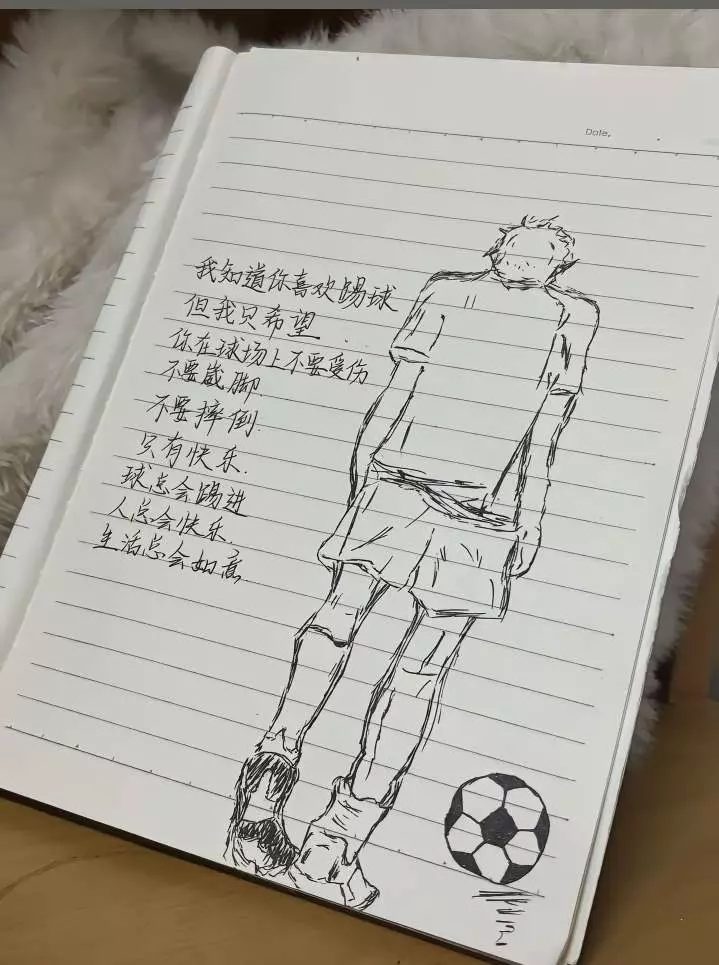 Date.
我知道你喜欢踢球
但我只希望
你在球场上不要受伤
不要崴脚.
不要摔倒.
只有快乐.
球总会踢进
人总会快乐.
生活总会如意.